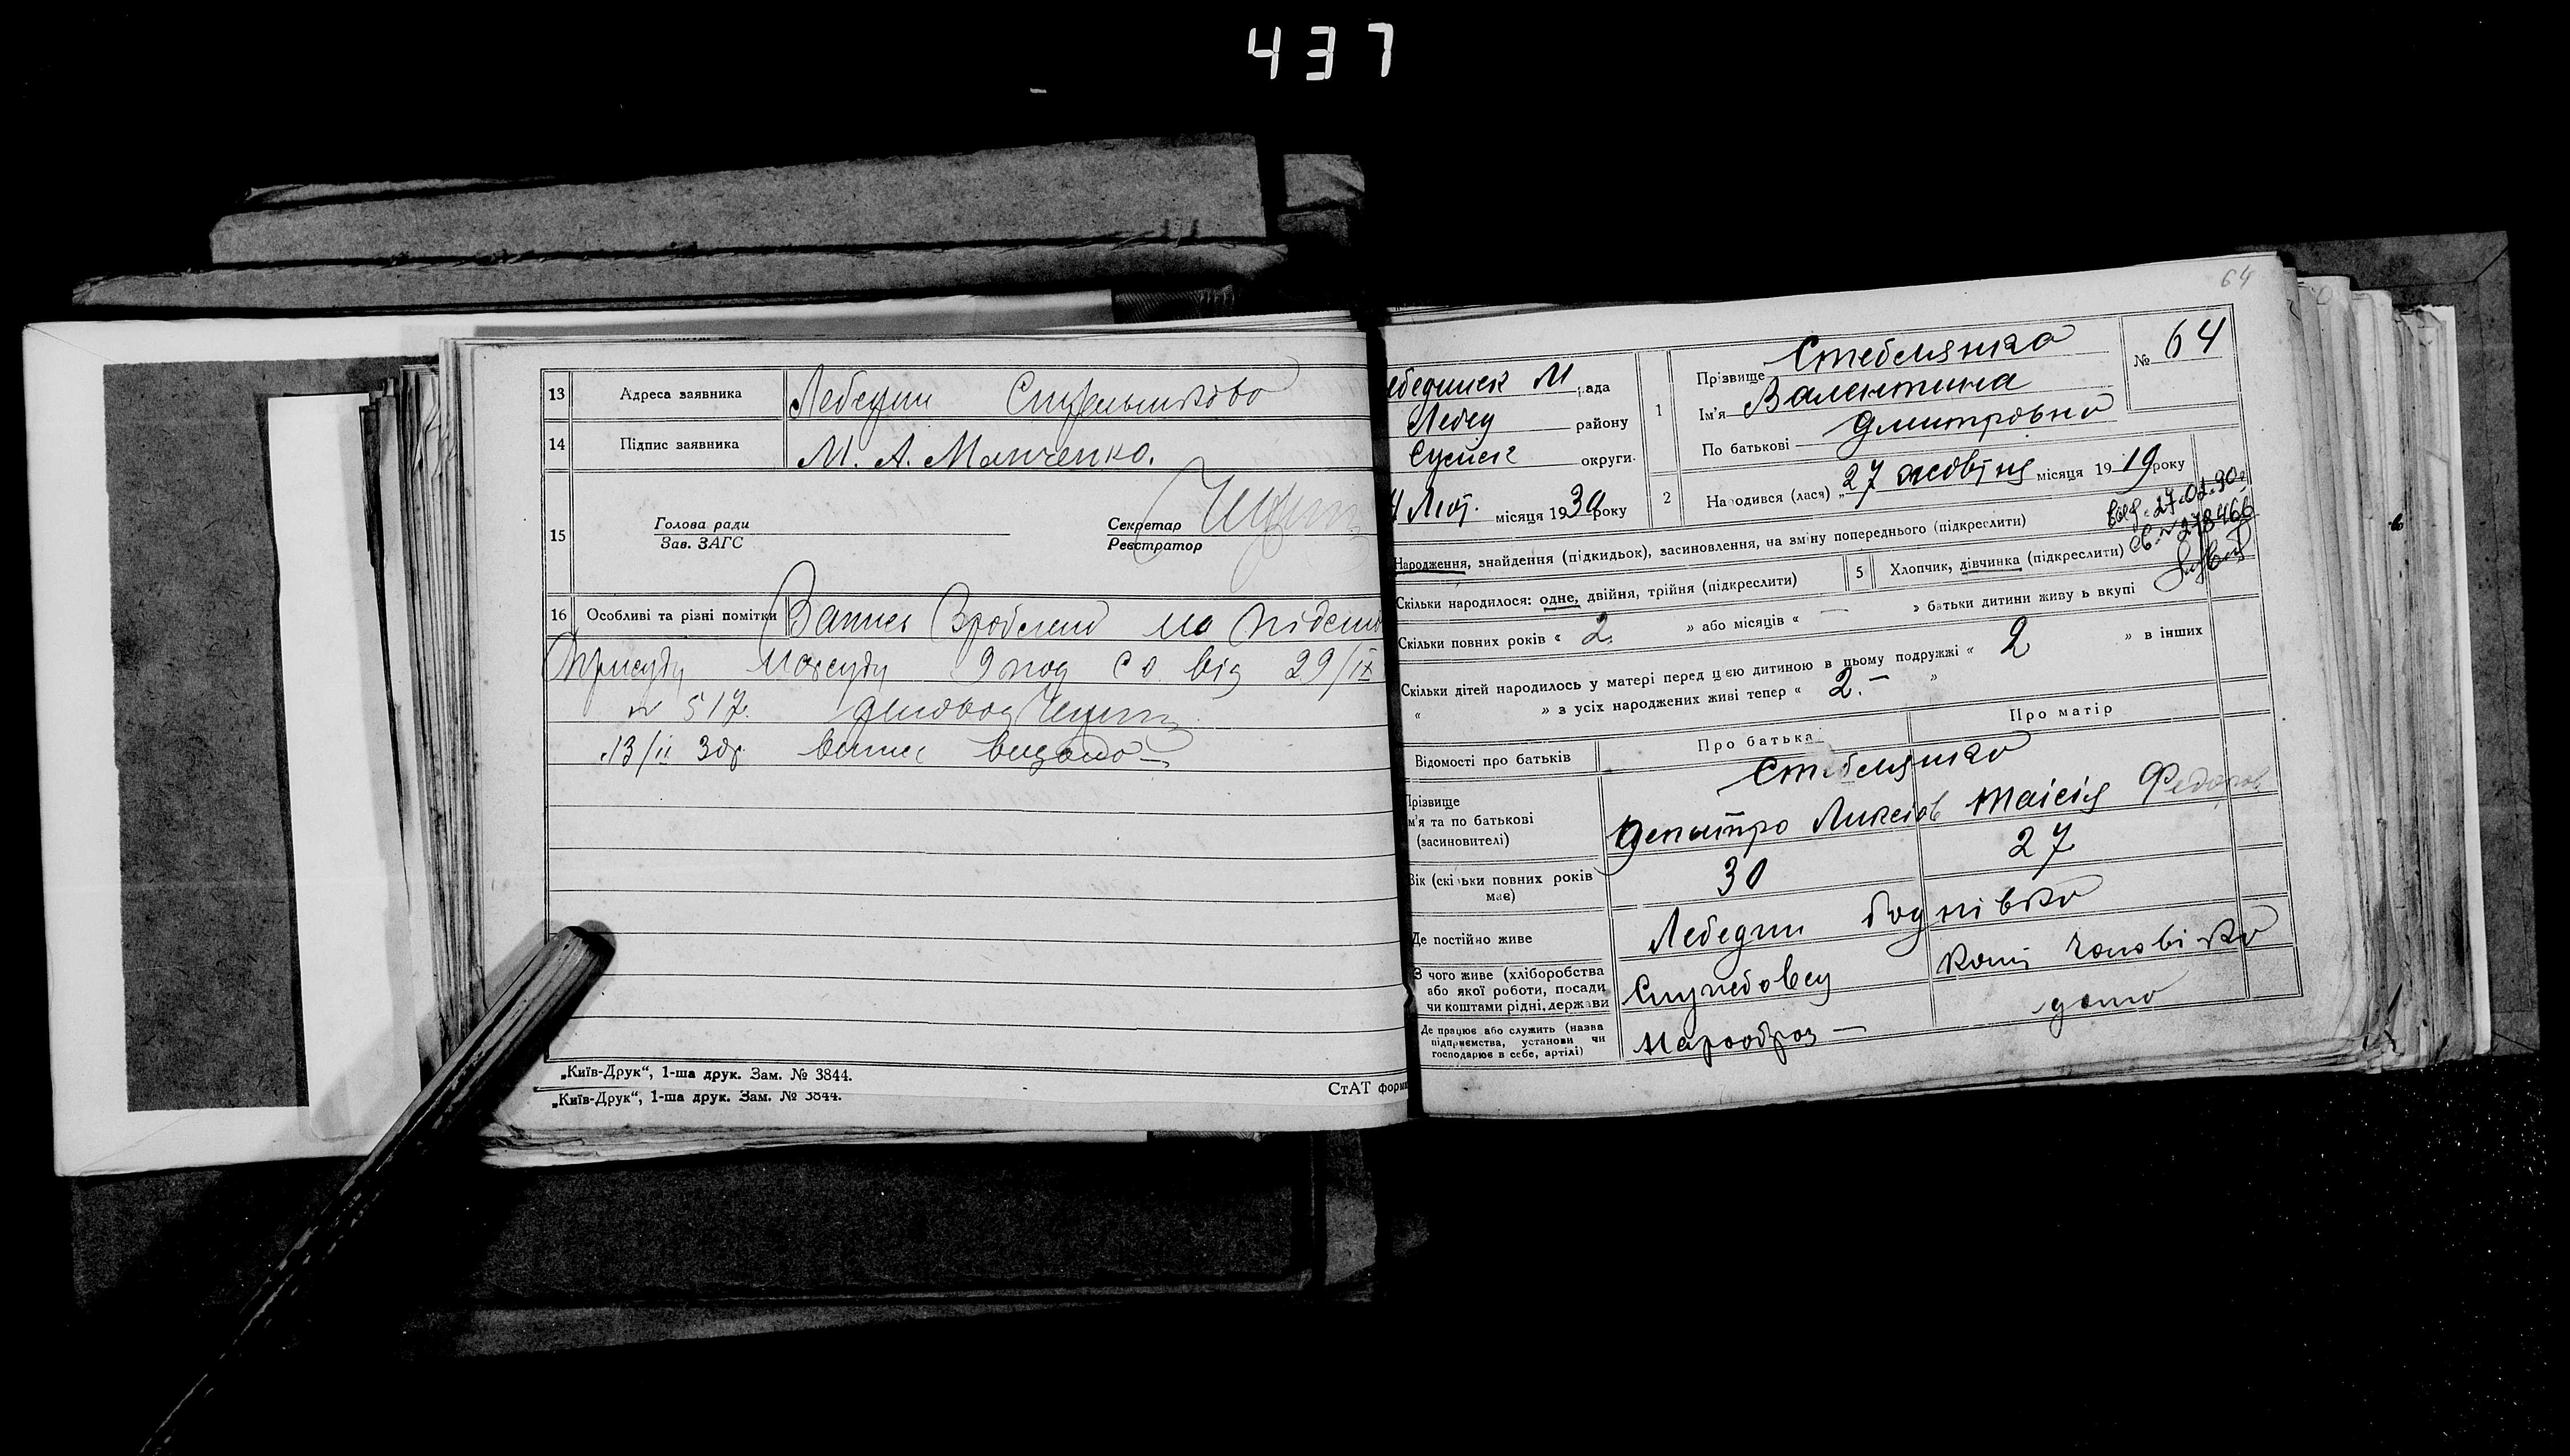 437
13 Адреса заявника Лебедин
14 Підпис заявника М. А. Манченко.
15
Голова ради
Зав. ЗАГС
Секретар
Реєстратор
16 Особливі та різні помітки Запис на
від 29/IX
№ 517.
13/II 30р. видано
„Київ-Друк“, 1-ша друк. Зам. № 3844.
СтАТ форм
„Київ-Друк“, 1-ша друк. Зам. № 3844.
64
№ 64
ебединск М рада
Лебед району
Сумск округи.
Лют. місяця 1930 року
1 Прізвище Стеблянка
Ім'я Валентина
По батькові Дмитровна
2 Народився (лася) „ 27 жовтня місяця 1919 року
27.02.90г.
св. № 278466
Народження, знайдення (підкидьок), засиновлення, на зміну попереднього (підкреслити)
Скільки народилося: одне, двійня, трійня (підкреслити)
5 Хлопчик, дівчинка (підкреслити)
Скільки повних років « 2. » або місяців « — » батьки дитини живуть вкупі
Скільки дітей народилось у матері перед цією дитиною в цьому подружжі « 2 » в інших
« » з усіх народжених живі тепер « 2.— »
Відомості про батьків
Про батька
Про матір
Прізвище
м'я та по батькові
(засиновителі)
Стеблянко
Дмитро Ликсіов
Таісія Федоров
Вік (скільки повних років має)
30
27
Де постійно живе
Лебедин
З чого живе (хліборобства
або якої роботи, посади
чи коштами рідні, держави
Служебовец
чоловіка
Де працює або служить (назва
підприємства, установи чи
господарює в себе, артілі)
Нарообраз —
дома